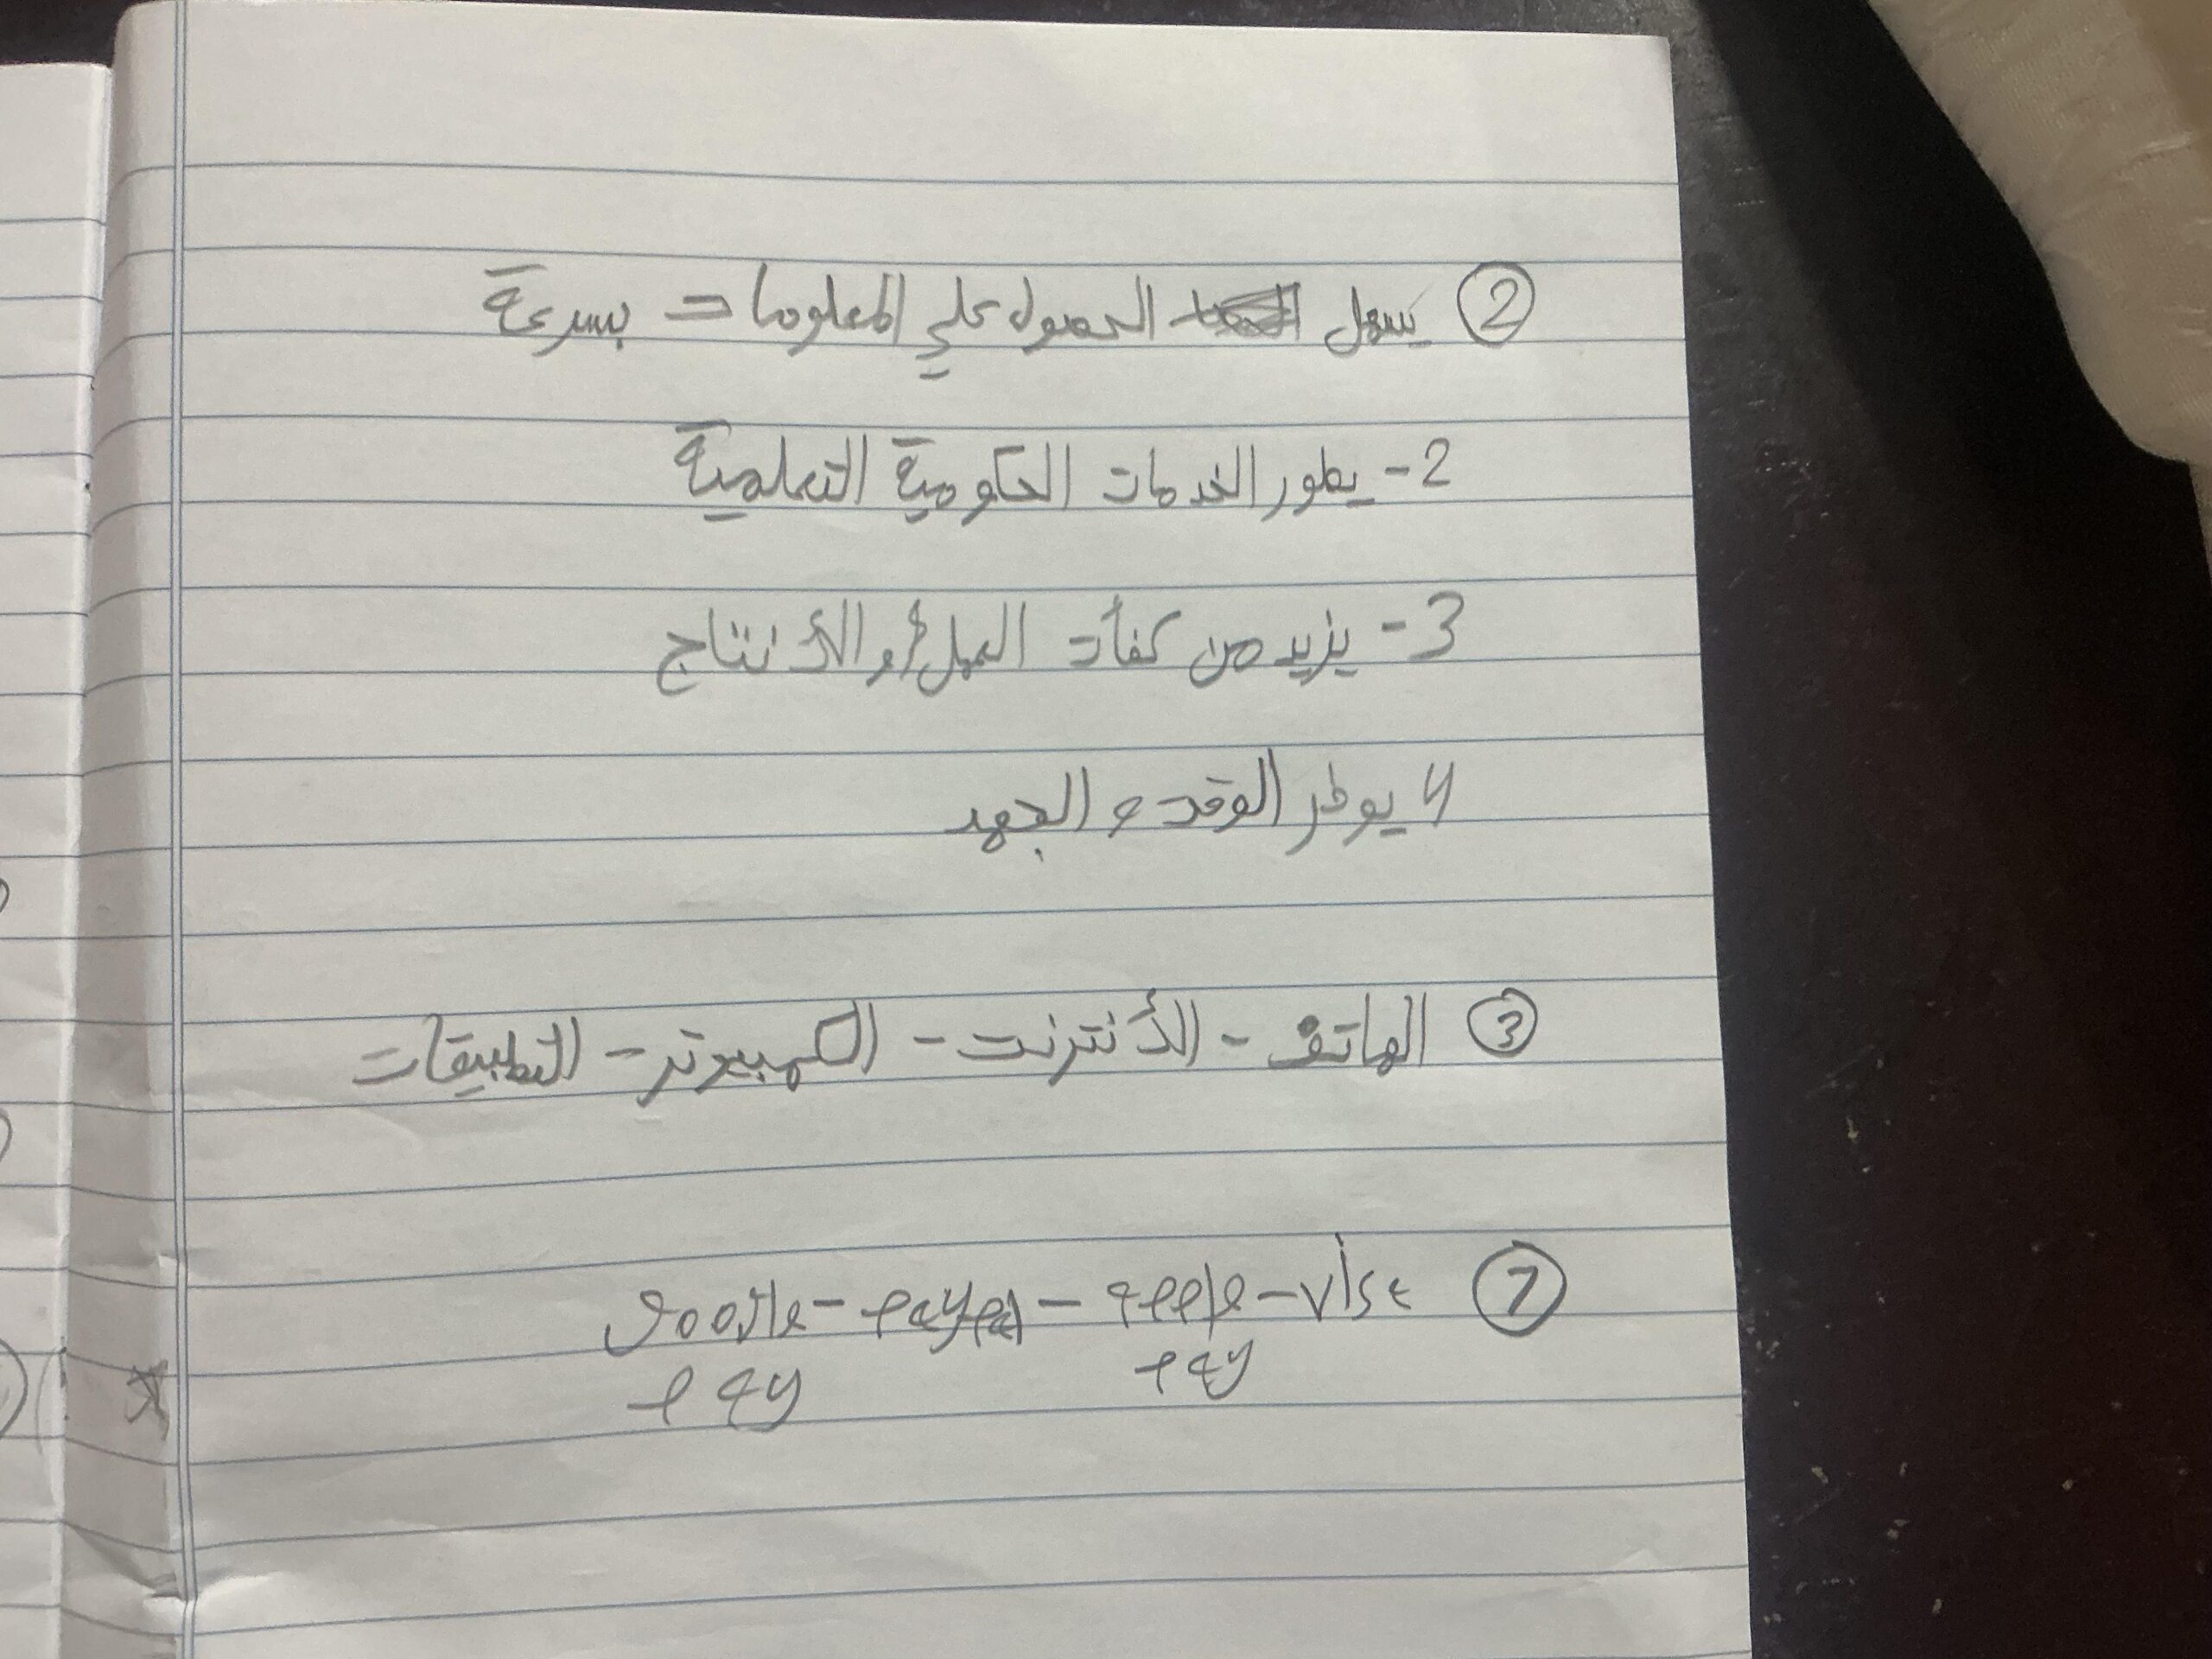 ② يسهل الحصول علي المعلومات بسرعة
2- يطور الخدمات الحكومية التعلمية
3- يزيد من كفأت العمل و الأنتاج
4 يوفر الوقت و الجهد
③ الهاتف - الأنترنت - الكمبيوتر - التطبيقات
⑦ visa - apple - paypal - google
pay pay